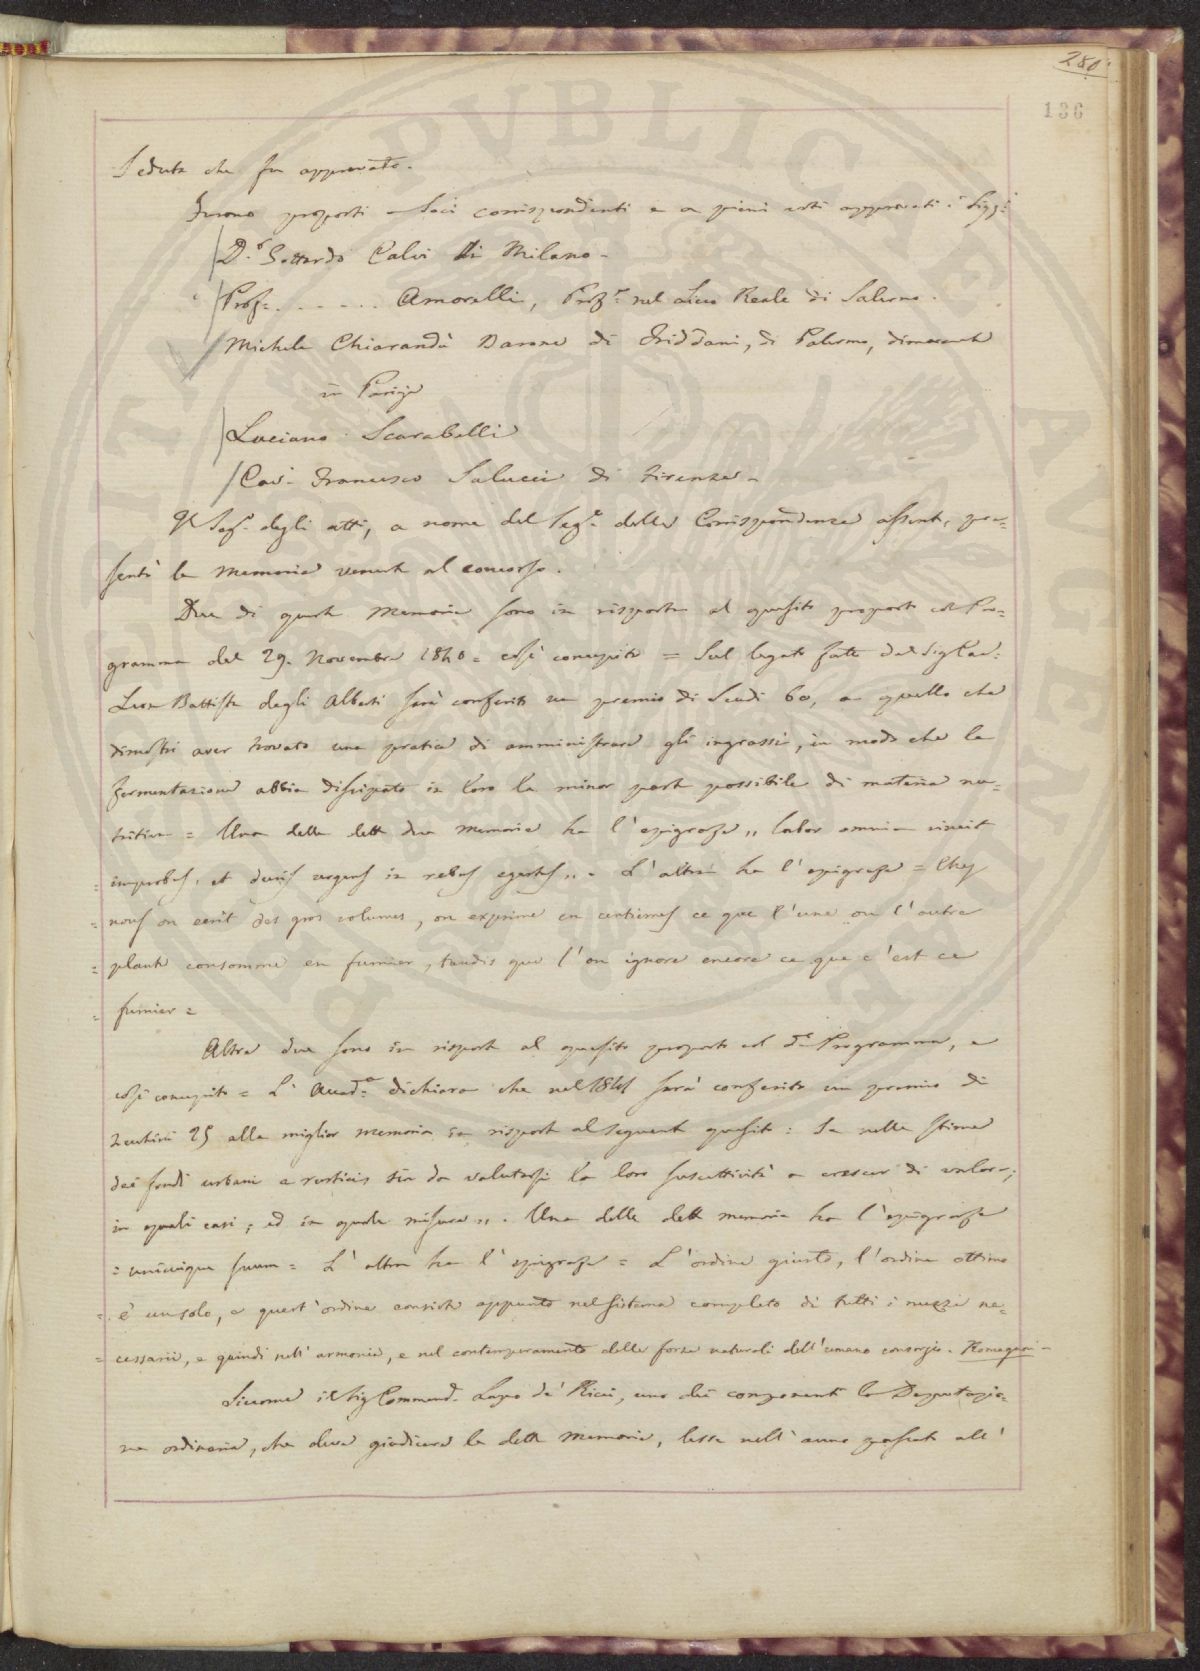 280.
136
Seduta che fu approvato.
Furono proposti a Soci corrispondenti e a pieni voti approvati i Sigg.i
D.r Gottardo Calvi di Milano.
Prof. . . . . . . Amorelli, Prof.e nel Liceo Reale di Salerno.
Michele Chiarandà Barone di Friddani, di Palermo, dimorante
in Parigi
Luciano Scarabelli
Cav. Francesco Salucci di Firenze.
Il Seg.o degli atti, a nome del Seg.o delle Corrispondenze assente, pre=
sentò le memorie venute al concorso.
Due di queste Memorie sono in risposta al quesito proposto col Pro=
gramma del 29. Novembre 1840 = così concepito = Sul legato fatto dal Sig Cav.
Leon Battista degli Alberti sarà conferito un premio di Scudi 60, a quello che
dimostri aver trovato una pratica di amministrare gli ingrassi, in modo che la
fermentazione abbia dissipato in loro la minor parte possibile di materia nu=
tritiva = Una delle dette due memorie ha l'epigrafe „ labor omnia vincit
= improbus, et duris urgens in rebus egestas „. L'altra ha l'epigrafe = Chez
= nous on écrit des gros volumes, on exprime en centiemes ce que l'une ou l'autre
= plante consomme en fumier, tandis que l'on ignore encore ce que c'est ce
= fumier =
Altre due sono in risposta al quesito proposto col d.o Programma, e
così concepito = L'Accad.a dichiara che nel 1841 sarà conferito un premio di
Zecchini 25 alla miglior memoria in risposta al seguente quesito: Se nelle stime
dei fondi urbani e rusticis sia da valutarsi la loro suscettività a crescer di valore;
in quali casi; ed in quale misura „. Una delle dette memorie ha l'epigrafe
= unicuique suum = L'altra ha l'epigrafe = L'ordine giusto, l'ordine ottimo
= è un solo, e quest'ordine consiste appunto nel sistema completo di tutti i mezzi ne=
= cessarii, e quindi nell'armonia, e nel contemperamento delle forze naturali dell'umano consorzio. Romagnosi =
Siccome il Sig Commend. Lapo de' Ricci, uno dei componenti la Deputazio=
ne ordinaria, che deve giudicare le dette Memorie, lesse nell'anno passato all'